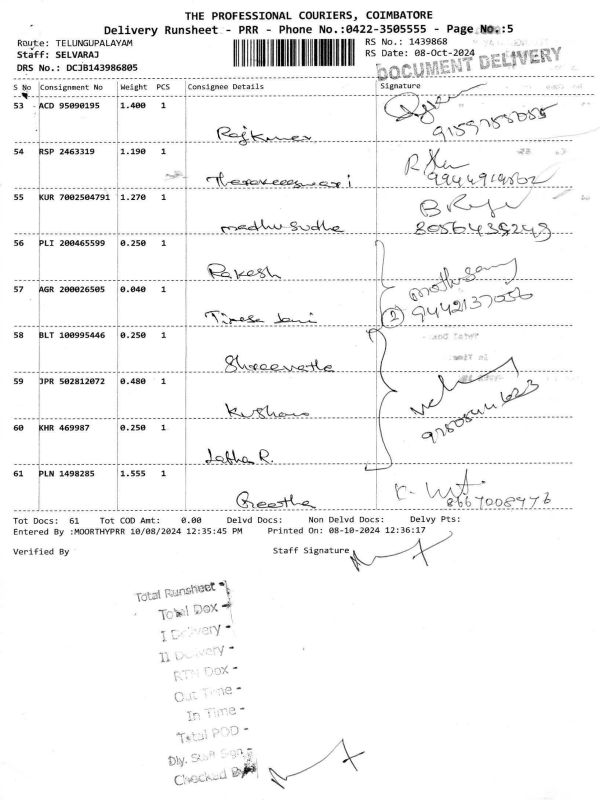 THE PROFESSIONAL COURIERS, COIMBATORE
Delivery Runsheet - PRR - Phone No.:0422-3505555 - Page No.:5
Route: TELUNGUPALAYAM RS No.: 1439868
Staff: SELVARAJ RS Date: 08-Oct-2024
DRS No.: DCJB143986805 DOCUMENT DELIVERY
S No Consignment No Weight PCS Consignee Details Signature
53 ACD 95090195 1.400 1
Rajkumar
54 RSP 2463319 1.190 1
55 KUR 7002504791 1.270 1
madhu sudha
8056438243
56 PLI 200465599 0.250 1
Rakesh
57 AGR 200026505 0.040 1
2 9442137056
58 BLT 100995446 0.250 1
59 JPR 502812072 0.480 1
60 KHR 469987 0.250 1
Labha R.
61 PLN 1498285 1.555 1
Preetha
8667008976
Tot Docs: 61 Tot COD Amt: 0.00 Delvd Docs: Non Delvd Docs: Delvy Pts:
Entered By :MOORTHYPRR 10/08/2024 12:35:45 PM Printed On: 08-10-2024 12:36:17
Verified By Staff Signature
Total Runsheet -
Total Dox -
I Delivery -
II Delivery -
RTN Dox -
Out Time -
In Time -
Total POD -
Dly. Staff Sign -
Checked By